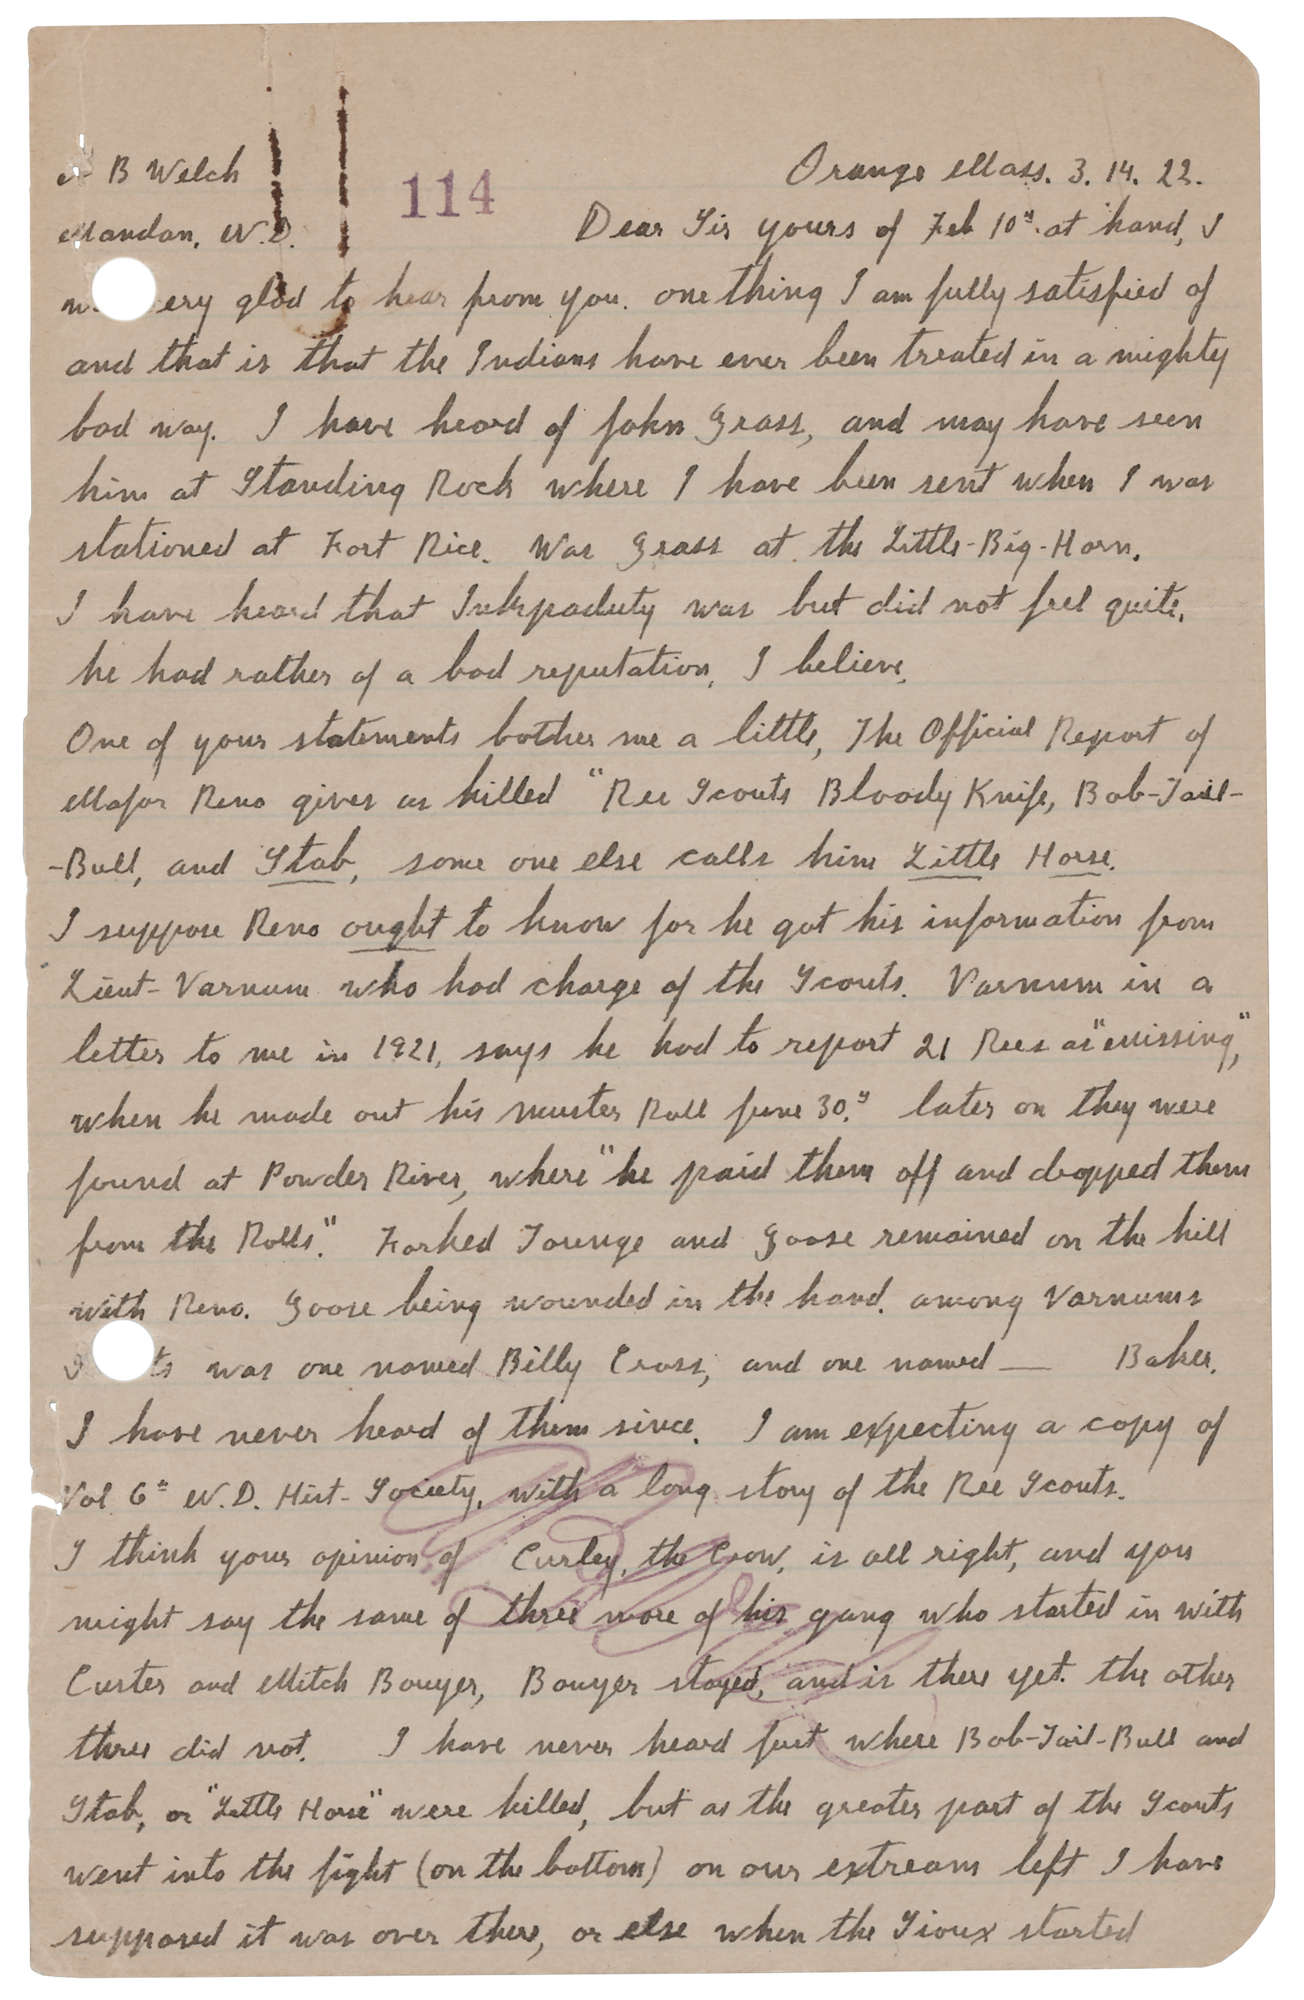 B Welch
Orange Mass. 3. 14. 22.
114
Mandan, N.D.
Dear Sir yours of Feb 10" at hand, I
ery glad to hear from you. one thing I am fully satisfied of
and that is that the Indians have ever been treated in a mighty
bad way. I have heard of John Grass, and may have seen
him at Standing Rock where I have been sent when I was
stationed at Fort Rice. Was Grass at the Little-Big-Horn.
I have heard that Inkpaduty was but did not feel quite.
he had rather of a bad reputation, I believe.
One of your statements bother me a little, The Official Report of
Major Reno gives as killed "Ree Scouts Bloody Knife, Bob-Tail-
-Bull, and Stab, some one else calls him Little Horse.
I suppose Reno ought to know for he got his information from
Lieut-Varnum who had charge of the Scouts. Varnum in a
letter to me in 1921, says he had to report 21 Rees as "missing",
when he made out his muster Roll June 30." later on they were
found at Powder River, where "he paid them off and dropped them
from the Rolls". Forked Tounge and Goose remained on the hill
with Reno. Goose being wounded in the hand. among Varnums
ts was one named Billy Cross, and one named — Baker.
I have never heard of them since. I am expecting a copy of
Vol 6" N.D. Hist-Society, with a long story of the Ree Scouts.
I think your opinion of Curley, the Crow, is all right, and you
might say the same of three more of his gang who started in with
Custer and Mitch Bouyer, Bouyer stayed, and is there yet. the other
three did not. I have never heard just where Bob-Tail-Bull and
Stab, or "Little Horse" were killed, but as the greater part of the Scouts
went into the fight (on the bottom) on our extream left I have
supposed it was over there, or else when the Sioux started